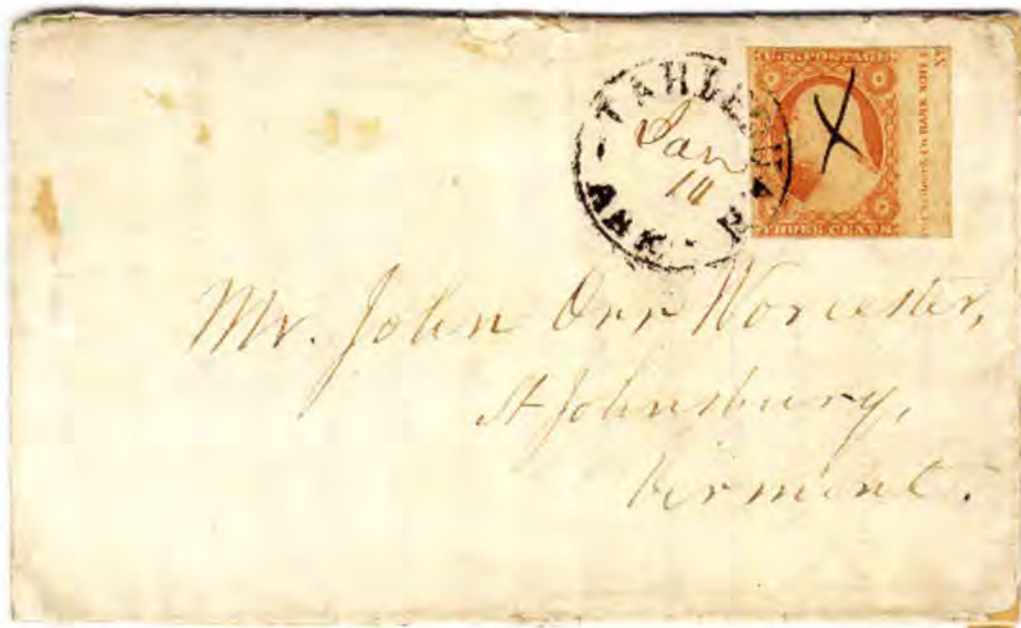 TAHLEQUAH
ARK.
Jan
10
U.S. POSTAGE
THREE CENTS
Mr. John Orr Worcester,
St Johnsbury,
Vermont.